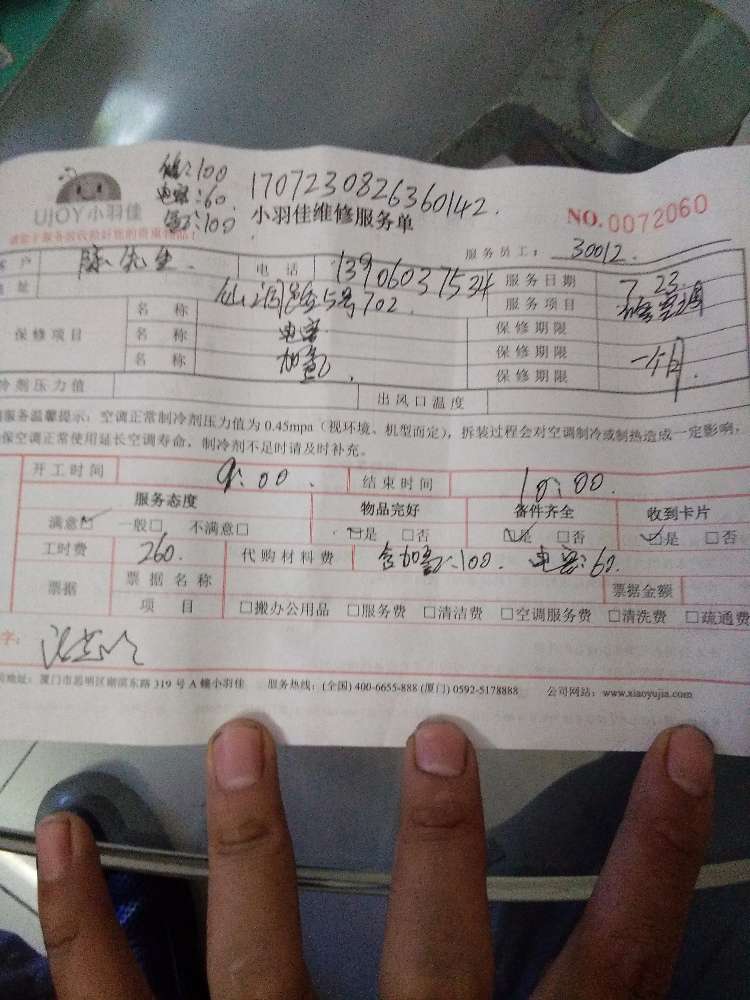 :100
电容:60.
:100
17072308263​60142.
UJOY小羽佳
小羽佳维修服务单
NO.0072060
服务员工: 30012.
户 陈先生 电话 13906037534 服务日期 7 23.
址 5号702. 服务项目
保修项目 名称 电容 保修期限
名称 加氟 保修期限 一个月
名称 保修期限
冷剂压力值 出风口温度
服务温馨提示:空调正常制冷剂压力值为 0.45mpa(视环境、机型而定),拆装过程会对空调制冷或制热造成一定影响,
保空调正常使用延长空调寿命,制冷剂不足时请及时补充。
开工时间 9:00. 结束时间 10:00.
服务态度 物品完好 备件齐全 收到卡片
满意☑ 一般□ 不满意□ ☑是 □否 ☑是 □否 ☑是 □否
工时费 260. 代购材料费 含加氟:100. 电容:60.
票据 票据名称 票据金额
项目 □搬办公用品 □服务费 □清洁费 □空调服务费 □清洗费 □疏通费
字:
地址:厦门市思明区湖滨东路 319 号 A 幢小羽佳 服务热线:(全国) 400-6655-888 (厦门) 0592-5178888 公司网站:www.xiaoyujia.com